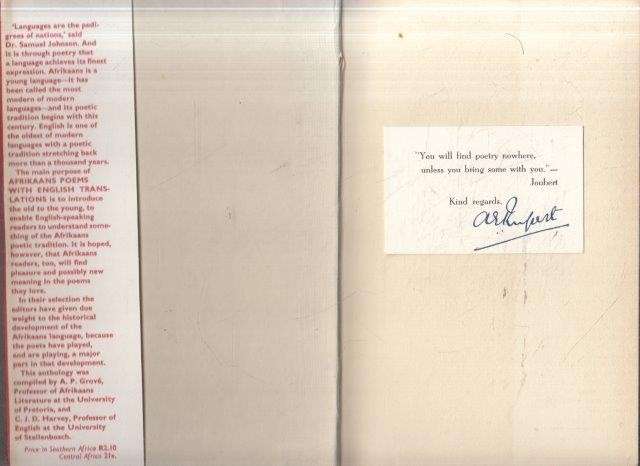 'Languages are the pedi-
grees of nations,' said
Dr. Samuel Johnson. And
it is through poetry that
a language achieves its finest
expression. Afrikaans is a
young language—it has
been called the most
modern of modern
languages—and its poetic
tradition begins with this
century. English is one of
the oldest of modern
languages with a poetic
tradition stretching back
more than a thousand years.
The main purpose of
AFRIKAANS POEMS
WITH ENGLISH TRANS-
LATIONS is to introduce
the old to the young, to
enable English-speaking
readers to understand some-
thing of the Afrikaans
poetic tradition. It is hoped,
however, that Afrikaans
readers, too, will find
pleasure and possibly new
meaning in the poems
they love.
In their selection the
editors have given due
weight to the historical
development of the
Afrikaans language, because
the poets have played,
and are playing, a major
part in that development.
This anthology was
compiled by A. P. Grové,
Professor of Afrikaans
Literature at the University
of Pretoria, and
C. J. D. Harvey, Professor of
English at the University
of Stellenbosch.
Price in Southern Africa R2.10
Central Africa 21s.
"You will find poetry nowhere,
unless you bring some with you."—
Joubert
Kind regards,